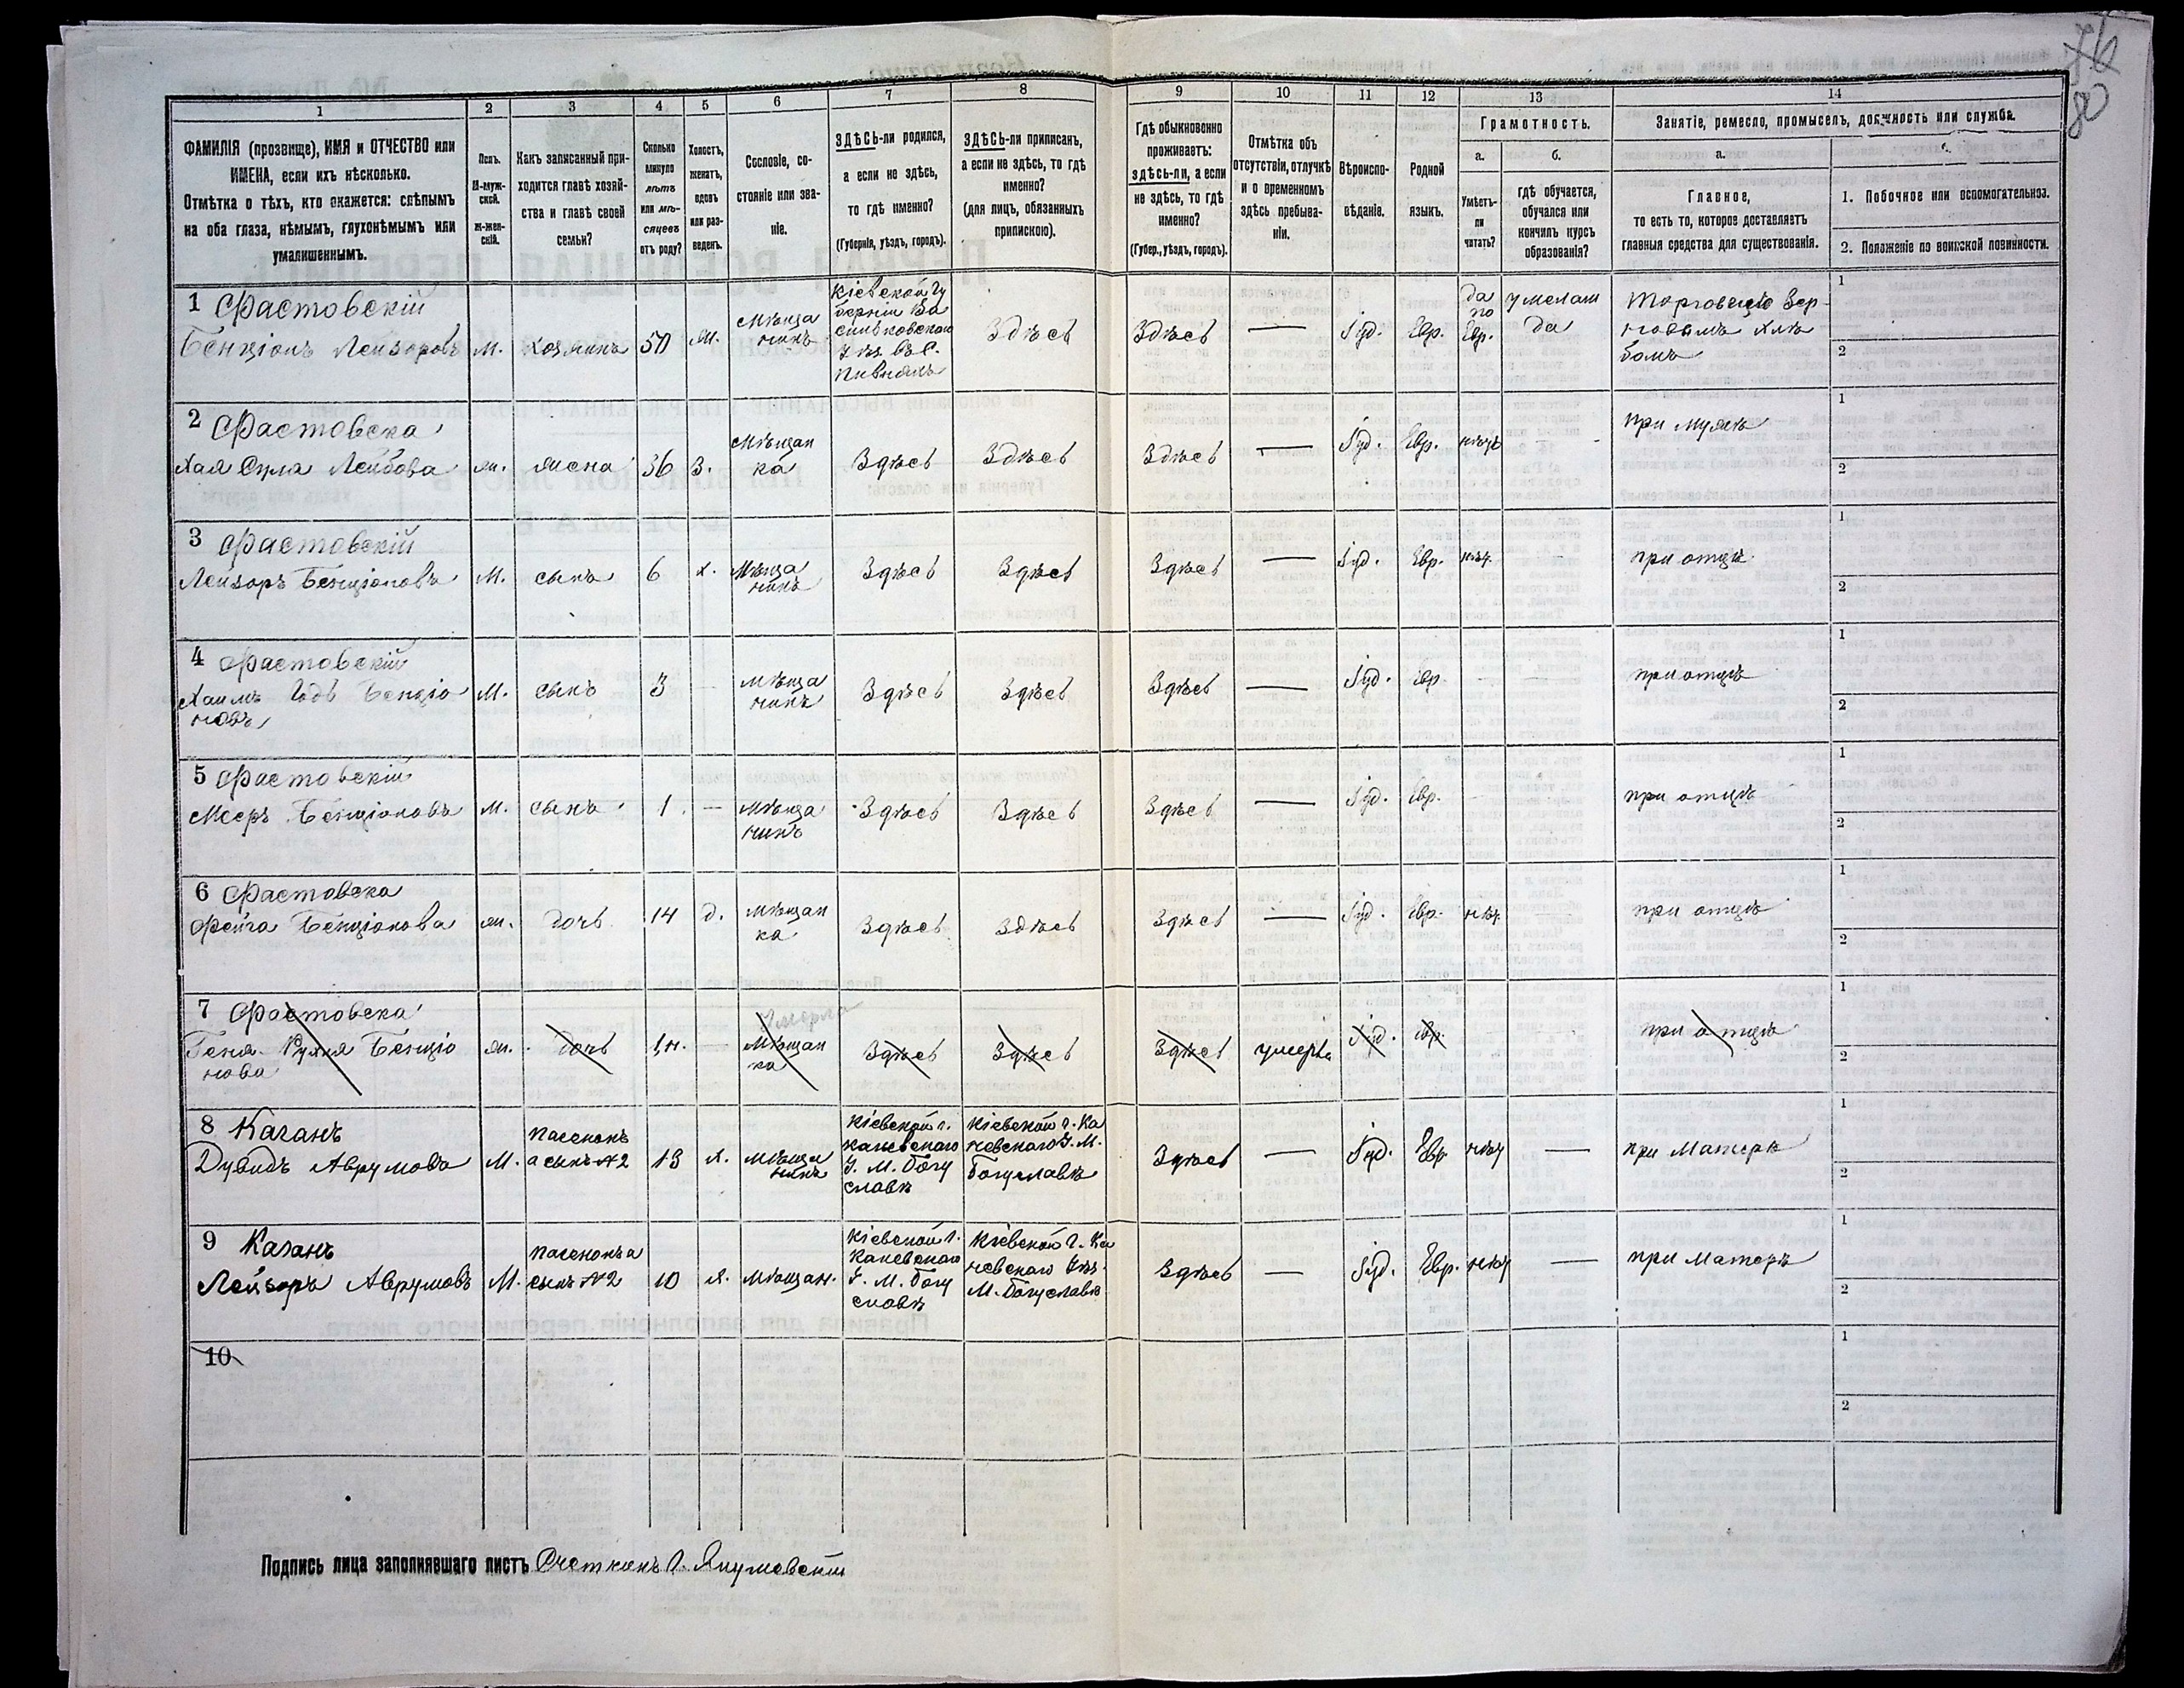 76
80
1
2
3
4
5
6
7
8
9
10
11
12
13
14
ФАМИЛІЯ (прозвище), ИМЯ и ОТЧЕСТВО или
ИМЕНА, если ихъ нѣсколько.
Отмѣтка о тѣхъ, кто окажется: слѣпымъ
на оба глаза, нѣмымъ, глухонѣмымъ или
умалишеннымъ.
Полъ.
М-муж-
ской.
Ж-жен-
скій.
Какъ записанный при-
ходится главѣ хозяй-
ства и главѣ своей
семьи?
Сколько
минуло
лѣтъ
или мѣ-
сяцевъ
отъ роду?
Холостъ,
женатъ,
вдовъ
или раз-
веденъ.
Сословіе, со-
стояніе или зва-
ніе.
ЗДѢСЬ-ли родился,
а если не здѣсь,
то гдѣ именно?
(Губернія, уѣздъ, городъ).
ЗДѢСЬ-ли приписанъ,
а если не здѣсь, то гдѣ
именно?
(для лицъ, обязанныхъ
припискою).
Гдѣ обыкновенно
проживаетъ:
здѣсь-ли, а если
не здѣсь, то гдѣ
именно?
(Губер., уѣздъ, городъ).
Отмѣтка объ
отсутствіи, отлучкѣ
и о временномъ
здѣсь пребыва-
ніи.
Вѣроиспо-
вѣданіе.
Родной
языкъ.
Грамотность.
а.
Умѣетъ-
ли
читать?
б.
гдѣ обучается,
обучался или
кончилъ курсъ
образованія?
Занятіе, ремесло, промыселъ, должность или служба.
а.
Главное,
то есть то, которое доставляетъ
главныя средства для существованія.
1. Побочное или вспомогательное.
2. Положеніе по воинской повинности.
1 Фастовскій
Бенціонъ Лейзоровъ
М.
Хозяинъ
50
Ж.
Мѣща
нинъ
Кіевской Гу
берніи Ва
сильковскаго
Уѣз. въ с.
Пивняхъ
Здѣсь
Здѣсь
—
Іуд.
Евр.
Да
по
Евр.
у мелам
да
Торговецъ Зер-
новымъ хлѣ
бомъ
1
2
2 Фастовска
Хая Сура Лейбова
ж.
жена
36
З.
Мѣщан
ка
Здѣсь
Здѣсь
Здѣсь
—
Іуд.
Евр.
нѣтъ
—
при мужѣ
1
2
3 Фастовскій
Лейзоръ Бенціоновъ
М.
сынъ
6
х.
Мѣща
нинъ
Здѣсь
Здѣсь
Здѣсь
—
Іуд.
Евр.
нѣт.
—
при отцѣ
1
2
4 Фастовскій
Хаимъ Бенціо
новъ
М.
сынъ
3
—
Мѣща
нинъ
Здѣсь
Здѣсь
Здѣсь
—
Іуд.
Евр.
при отцѣ
1
2
5 Фастовскій
Мееръ Бенціоновъ
М.
сынъ
1
—
Мѣща
нинъ
Здѣсь
Здѣсь
Здѣсь
—
Іуд.
Евр.
при отцѣ
1
2
6 Фастовска
Фейга Бенціонова
ж.
дочь
14
д.
Мѣщан
ка
Здѣсь
Здѣсь
Здѣсь
—
Іуд.
Евр.
нѣт.
при отцѣ
1
2
7 Фастовска
Геня Бенціо
нова
ж.
дочь
1 м.
—
Умерла
Мѣщан
ка
Здѣсь
Здѣсь
Здѣсь
умерла
Іуд.
Евр.
при отцѣ
1
2
8 Каганъ
Дувидъ Аврумовъ
М.
пасенокъ
а сынъ №2
13
х.
Мѣща
нинъ
Кіевской г.
Каневскаго
У. М. Богу
славѣ
Кіевской г. Ка
невскаго У. М.
Богуславѣ
Здѣсь
—
Іуд.
Евр.
нѣт
—
при Матерѣ
1
2
9 Каганъ
Лейзоръ Аврумовъ
М.
пасенокъ а
сынъ №2
10
х.
Мѣщан.
Кіевской г.
Каневскаго
У. М. Богу
славѣ
Кіевской г. Ка
невскаго Уѣз.
М. Богуславѣ
Здѣсь
—
Іуд.
Евр.
нѣт
—
при Матерѣ
1
2
10
1
2
Подпись лица заполнявшаго листъ Счетчикъ